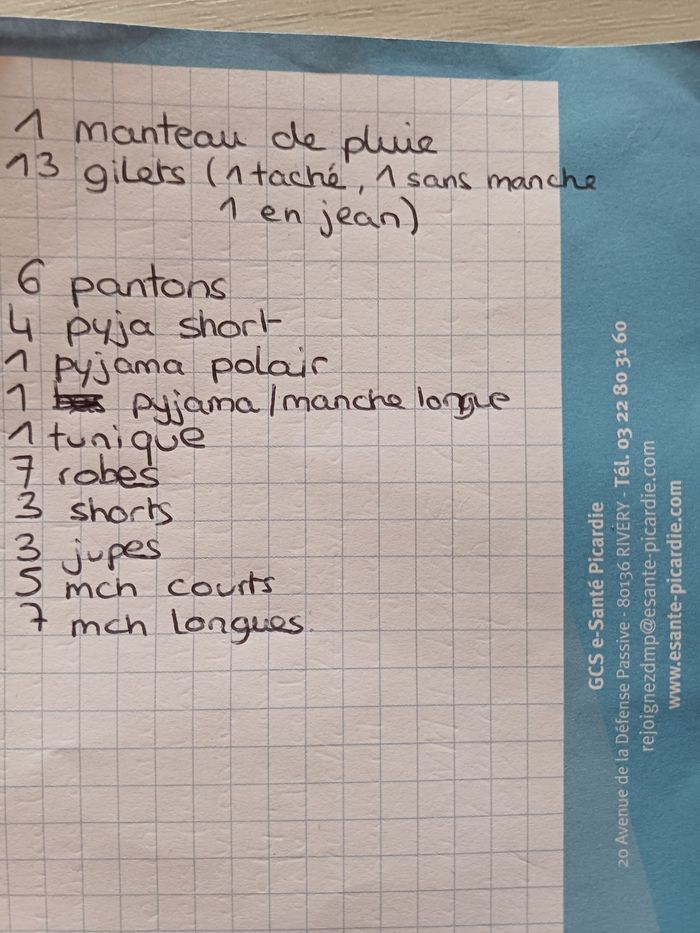 1 manteau de pluie
13 gilets (1 taché, 1 sans manche
1 en jean)
6 pantons
4 pyja short
1 pyjama polair
1 pyjama/manche longue
1 tunique
7 robes
3 shorts
3 jupes
5 mch courts
7 mch longues.
GCS e-Santé Picardie
20 Avenue de la Défense Passive - 80136 RIVERY - Tél. 03 22 80 31 60
rejoignezdmp@esante-picardie.com
www.esante-picardie.com